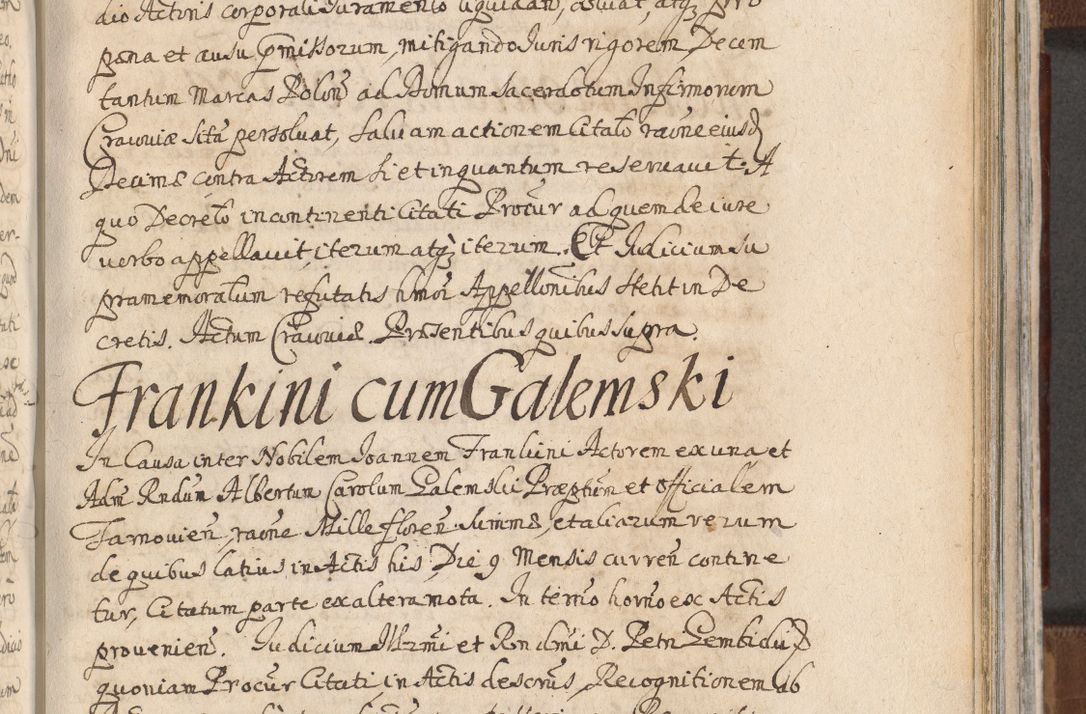 dio Actoris corporali Juramento liquidan, soluat, atq3 pro
pæna et ausu præmissorum, mitigando Juris rigorem, Decem
tantum Marcas Polon ad Domum Sacerdotum Infirmorum
Cracouiæ sitã persoluat, Saluam actionem Citato raõne eiusd
Decimæ contra Actorem si et inquantum reseruauit. A
quo Decreto incontinenti Citati Procur ad quem de iure
uerbo appellauit, iterum atq3 iterum. Et Iudicium su
pramemoratum refutatis hmõi Appellõnibus stetit in De
cretis. Actum Cracouiæ. Præsentibus quibus supra.
Frankini cum Galemski
In Causa inter Nobilem Joannem Frankini Actorem ex una et
Adm Rndum Albertum Carolum Galemski Præptum et Officialem
Tarnouien, raõne Mille floren summæ, et aliarum rerum
de quibus latius in Actis his, Die 9 Mensis curren contine
tur, Citatum parte ex altera mota. In termo horno ex Actis
prouenien. Iudicium Illrmi et Rndmi D. Petri Gembicki D
quoniam Procur Citati, in Actis descrus, Recognitionem ab